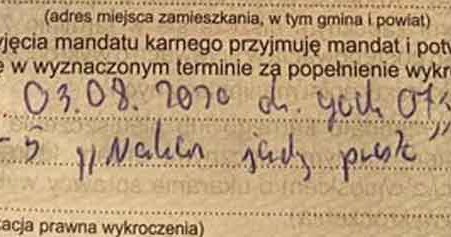 (adres miejsca zamieszkania, w tym gmina i powiat)
yjęcia mandatu karnego przyjmuję mandat i potw
e w wyznaczonym terminie za popełnienie wykro
03.08.2020 godz 07
-5 „Nakaz jazdy prosto”
acja prawna wykroczenia)